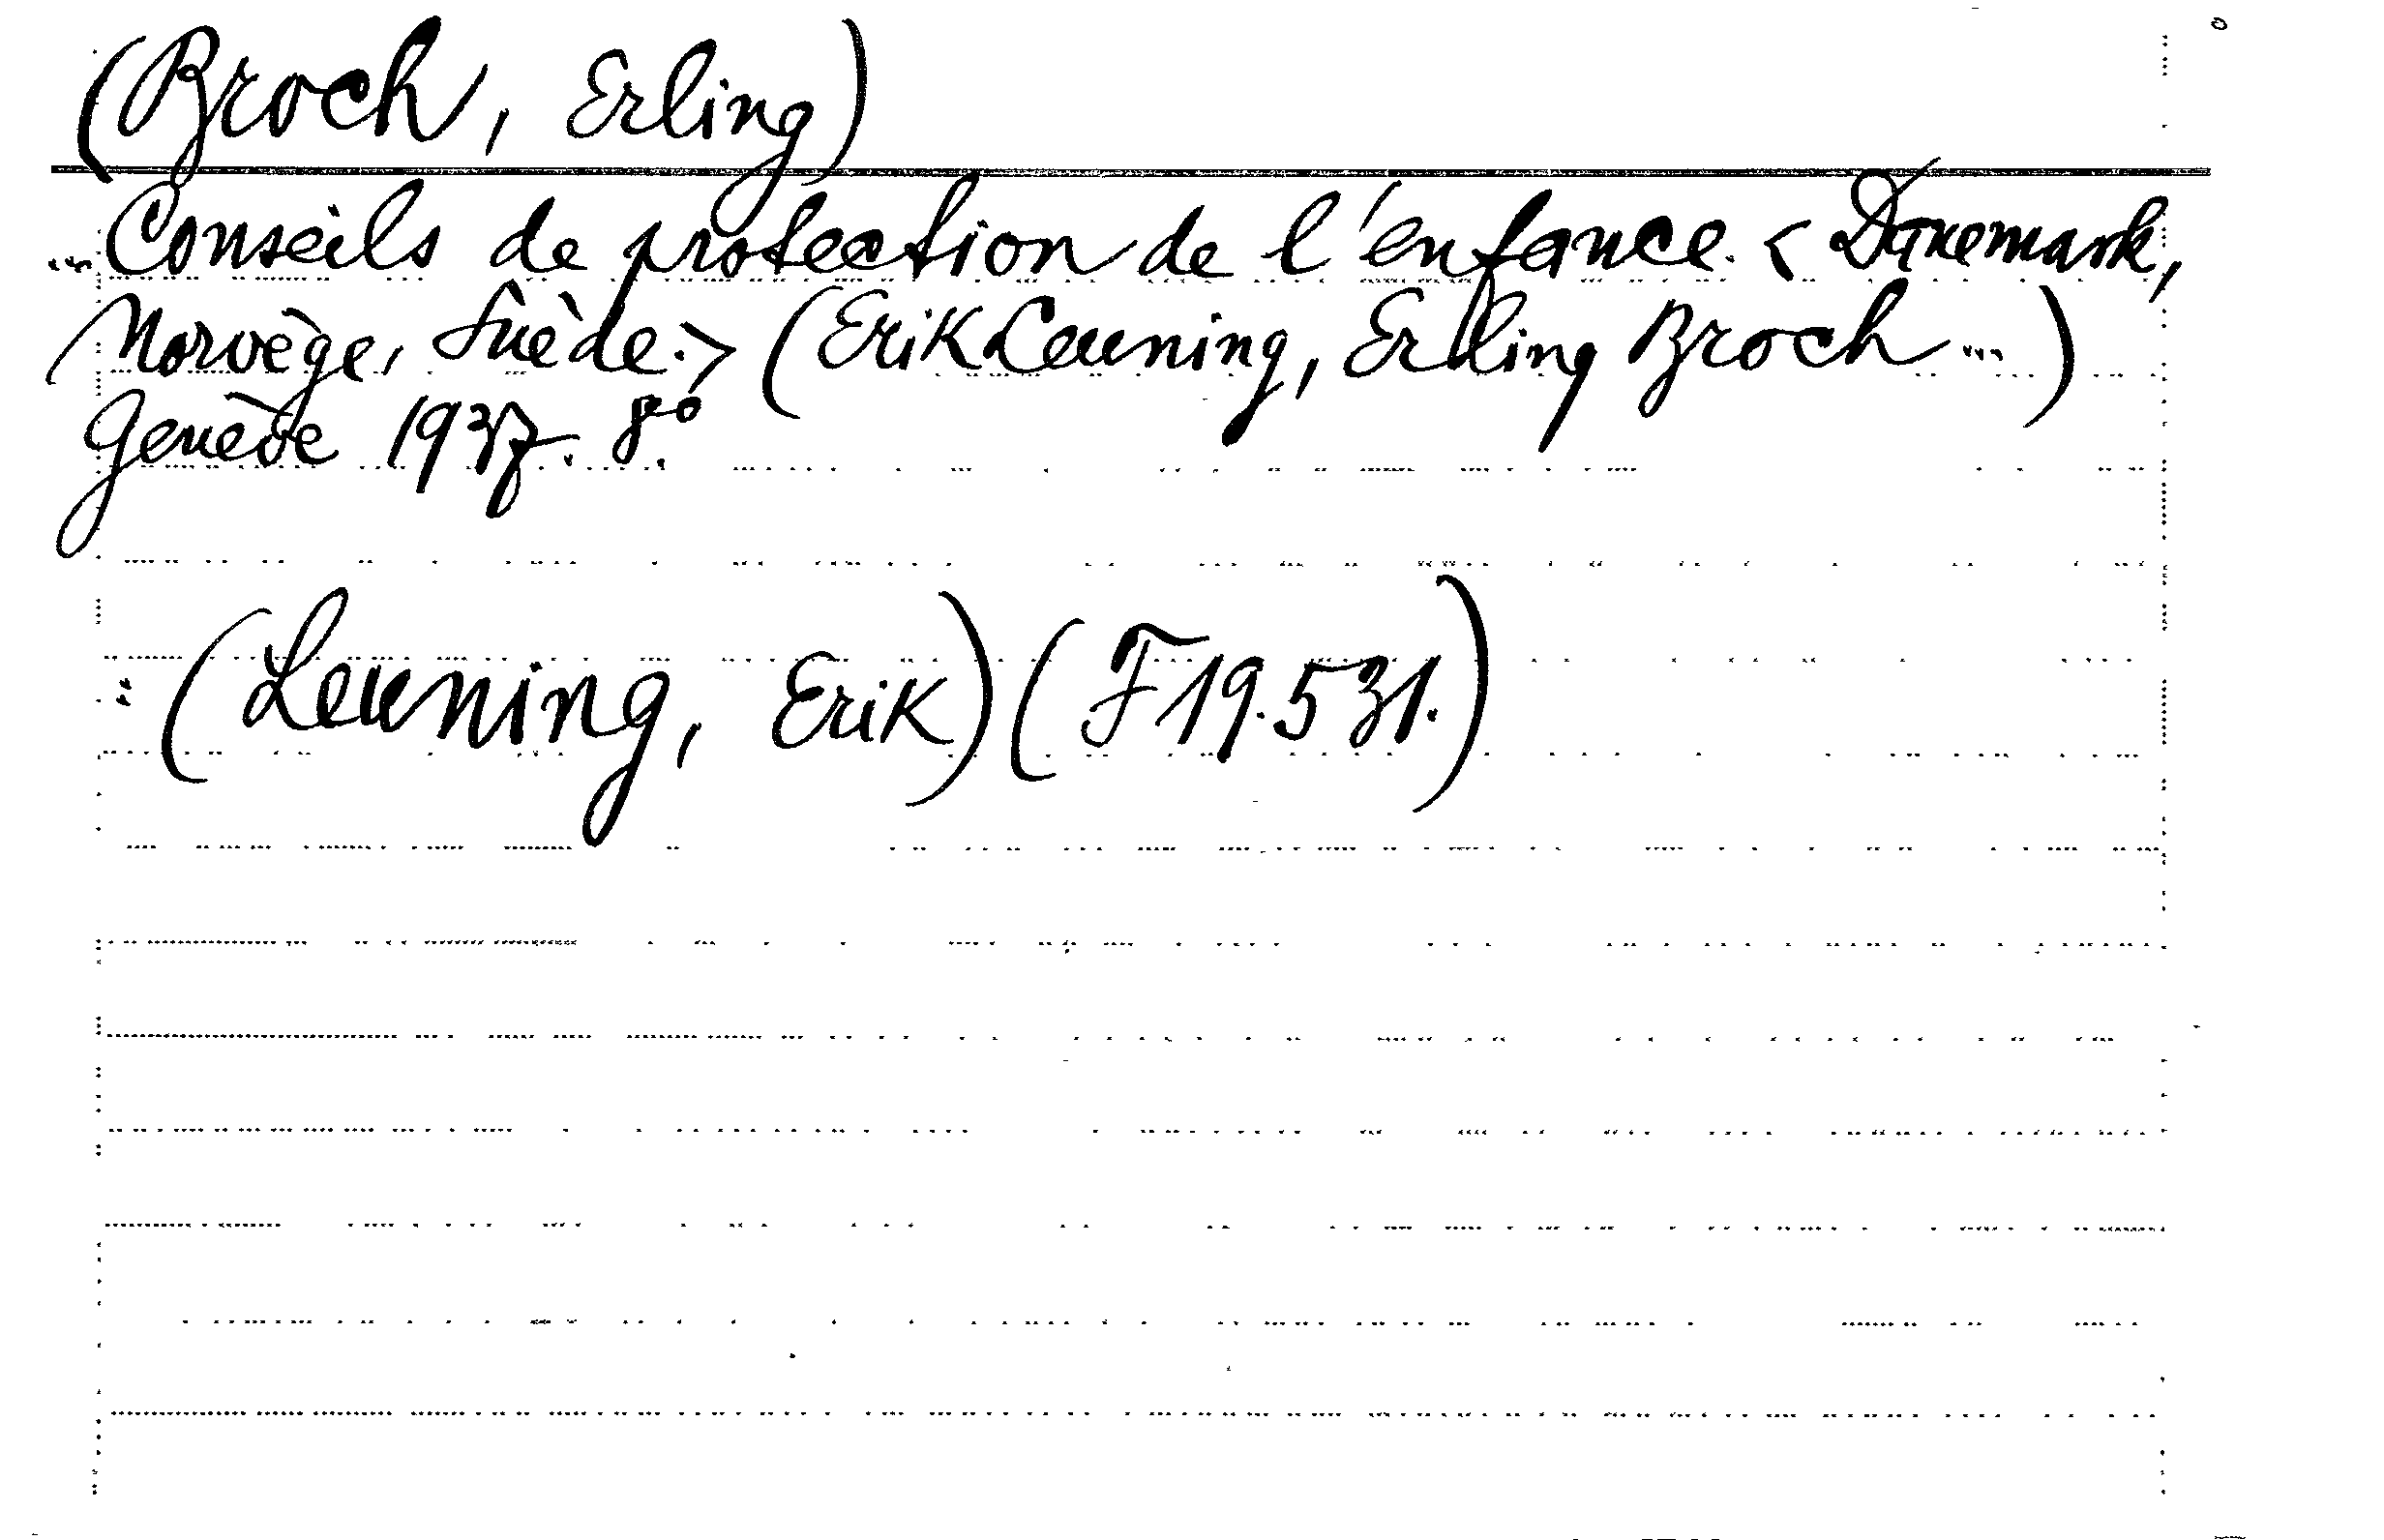 (Broch, Erling)
... Conseils de protection de l'enfance. < Danemark,
Norvège, Suède. > (Erik Leuning, Erling Broch ... )
Genève 1937. 8°.
: (Leuning, Erik) (F 19.531.)